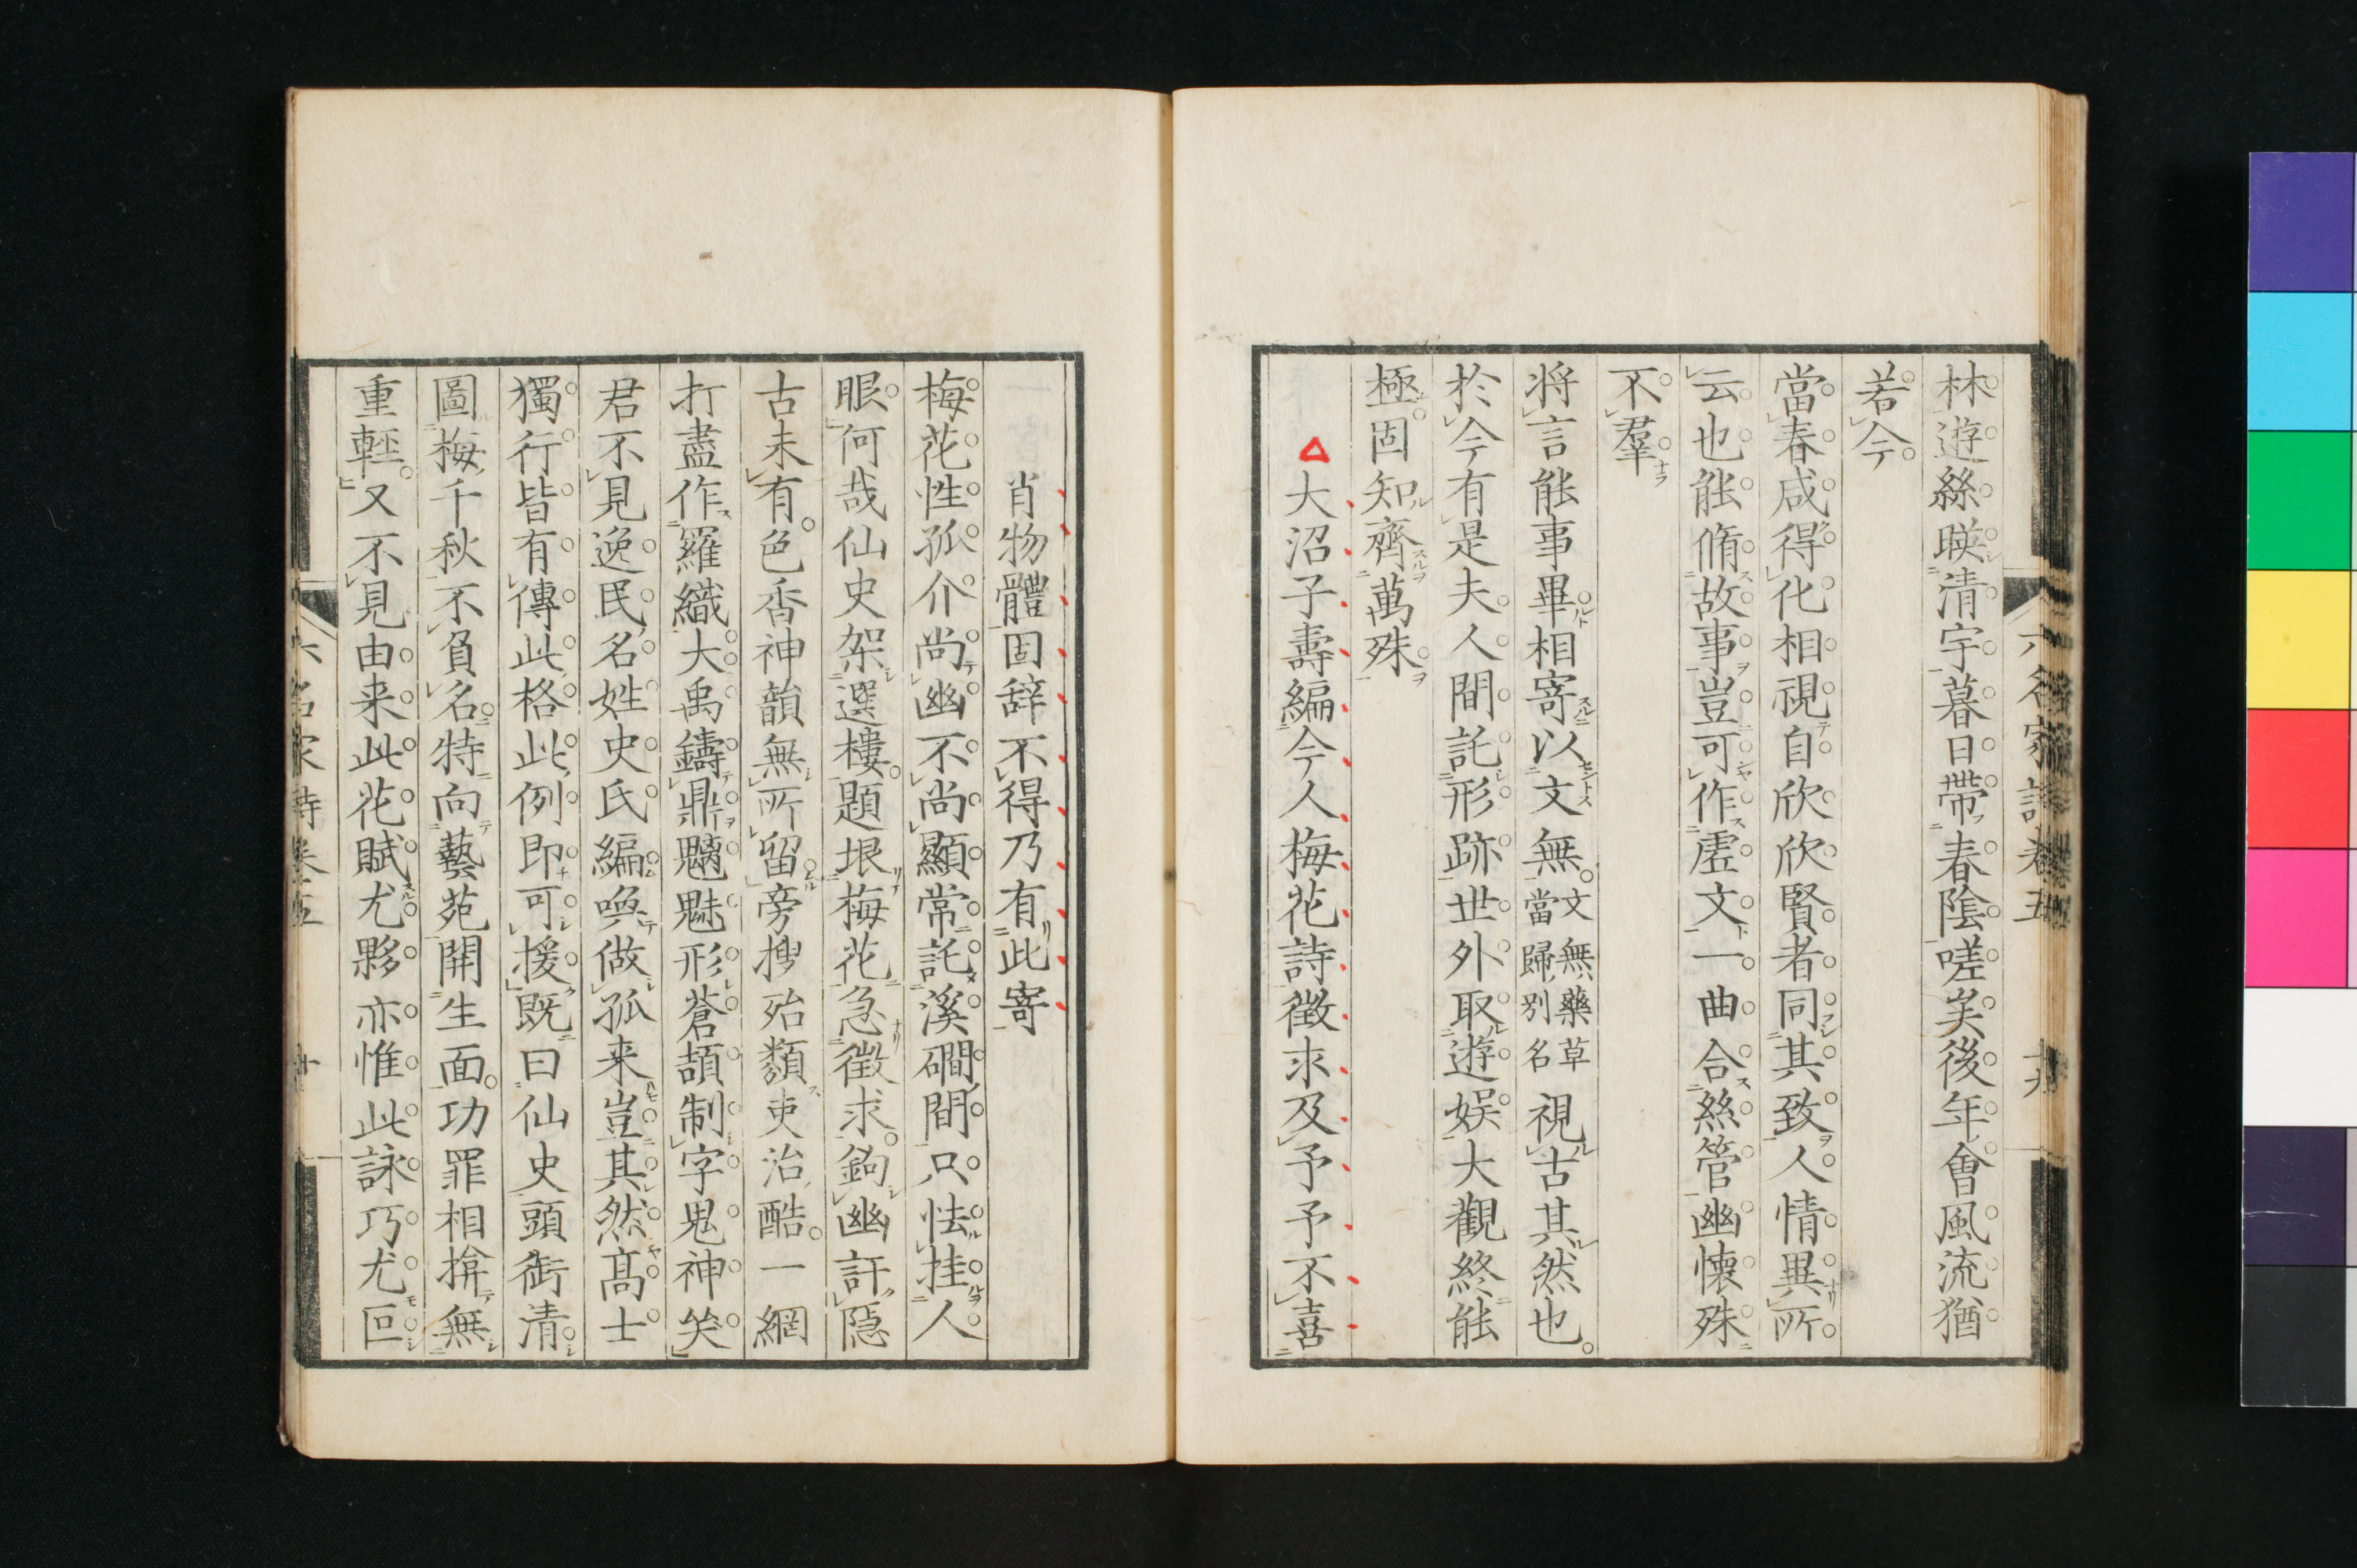 林遊絲暎清宇暮日帶春陰嗟矣後年會風流猶
若今
當春咸得化相視自欣欣賢者同其致人情異所
云也能脩故事豈可作虛文一曲合絲管幽懷殊
不羣
将言能事畢相寄以文無文無藥草當歸別名視古其然也
於今有是夫人間託形跡世外取遊娯大觀終能
極固知齊萬殊
大沼子壽編今人梅花詩徵求及予予不喜
肖物體固辞不得乃有此寄
梅花性孤介尚幽不尚顯常託溪磵間只怯挂人
眼何哉仙史架選樓題垠梅花急徵求鉤幽訐隱
古未有色香神韻無所留旁捜殆類吏治酷一網
打盡作羅織大禹鑄鼎魍魅形蒼頡制字鬼神哭
君不見逸民名姓史氏編喚做孤来豈其然高士
獨行皆有傳此格此例即可援既曰仙史頭銜清
圖梅千秋不負名特向藝苑開生面功罪相揜無
重輕又不見由来此花賦尤夥亦惟此詠巧尤叵
六名家詩巻五